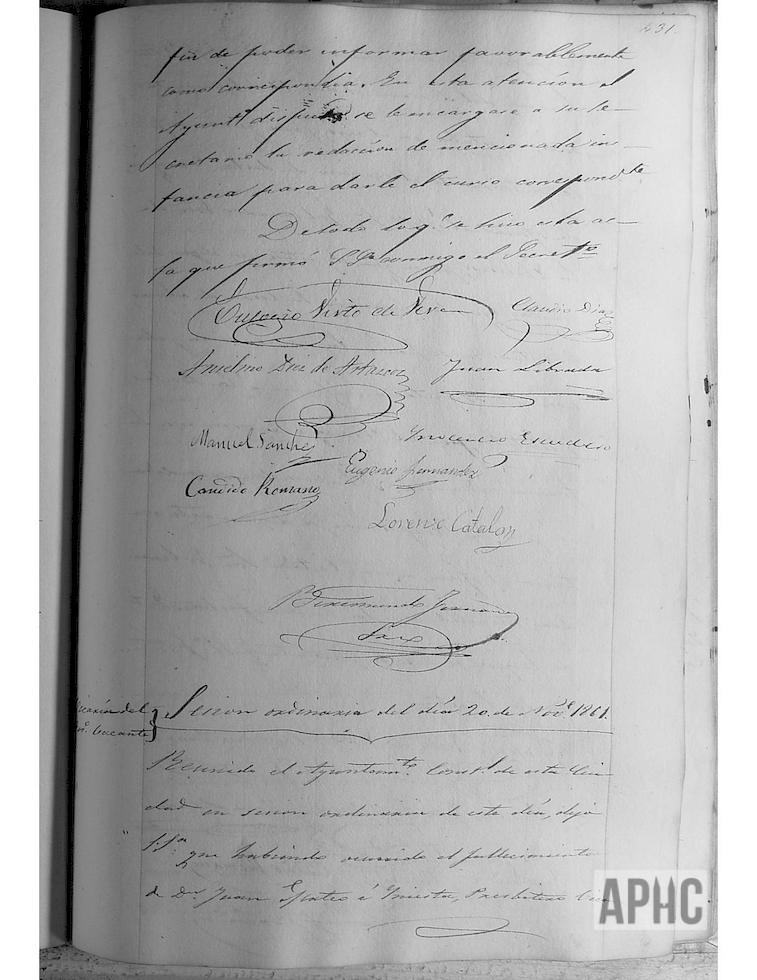 431.
fin de poder informar favorablemente
como correspondia. En esta atencion el
Ayunt.º dispuso se le encargase a su se-
cretario la redaccion de mencionada ins-
tancia para darle el curso correspond.te
De todo lo q.e se hizo esta ac-
ta que firmó S. S.a conmigo el Secret.º
Eusebio de
Claudio Diaz
Anselmo Diz de
Juan Librada
Manuel Sanchez
Inocencio Escudero
Eugenio Fernandez
Candido Romano
Lorenzo Catalan
Srio
del
Vacante
Sesion ordinaria del dia 20 de Nov.e 1861.
Reunido el Ayuntam.to Const.l de esta Ciu-
dad en sesion ordinaria de este dia, dijo
S. S.a que habiendo ocurrido el fallecimiento
de D.n Juan é Iniesta, Presbitero
APHC